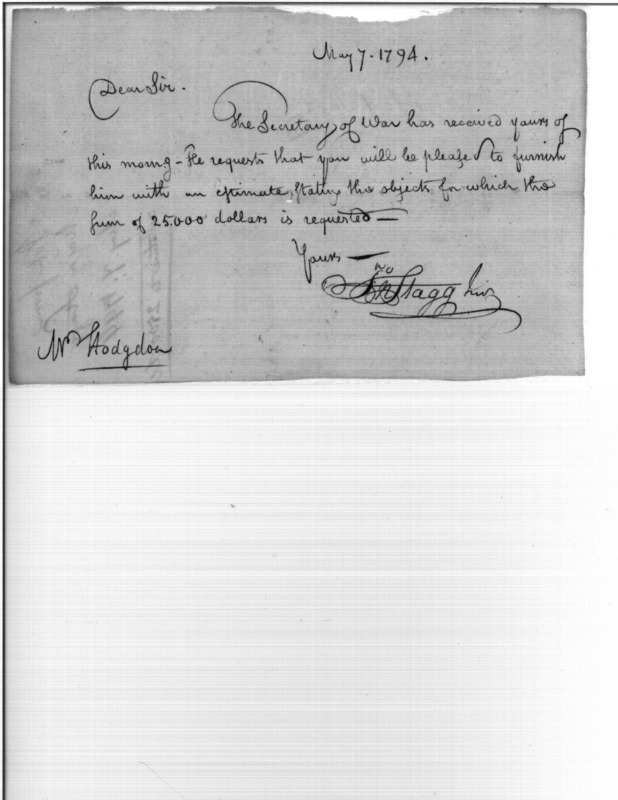 May 7. 1794.
Dear Sir.
The Secretary of War has received yours of
this morng - He requests that you will be pleased to furnish
him with an estimate, stating the objects for which the
sum of 25.000 dollars is requested —
Yours —
Jno Stagg Junr
Mr Hodgdon